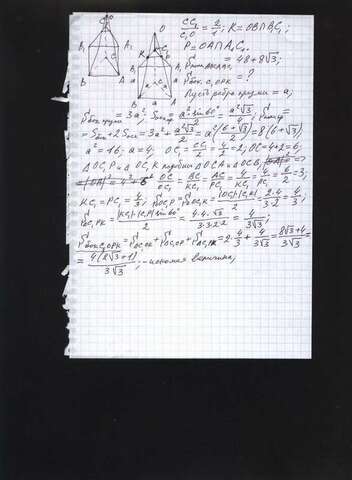 CC₁/C₁O = 2/1; K = OB∩B₁C₁;
P = OA∩A₁C₁.
= 48+8√3;
S бок. C₁OPK = ?
Пусть ребро призмы = a;
S бок. призмы = 3a²; = a²·sin60°/2 = a²√3/4;
= S бок + 2S осн = 3a² + a²√3/2 = a²(6+√3)/2 = 8(6+√3)
a² = 16; a = 4. OC₁ = CC₁/2 = 4/2 = 2; OC = 4+2 = 6;
△OC₁P и △OC₁K подобны △OCA и △OCB; =>
OC/OC₁ = BC/KC₁ = AC/PC₁ = 4/KC₁ = 4/PC₁ = 6/2 = 3;
KC₁ = PC₁ = 4/3; S OC₁P = S OC₁K = |OC₁|·|C₁K|/2 = 2·4/3·2 = 4/3;
S C₁PK = |KC₁|·|C₁P| sin60°/2 = 4·4·√3/3·3·2·2 = 4/3√3;
S бок C₁OPK = S OC₁K + S OC₁P + S C₁PK = 2·4/3 + 4/3√3 = 8√3+4/3√3 =
= 4(2√3+1)/3√3; – искомая величина;